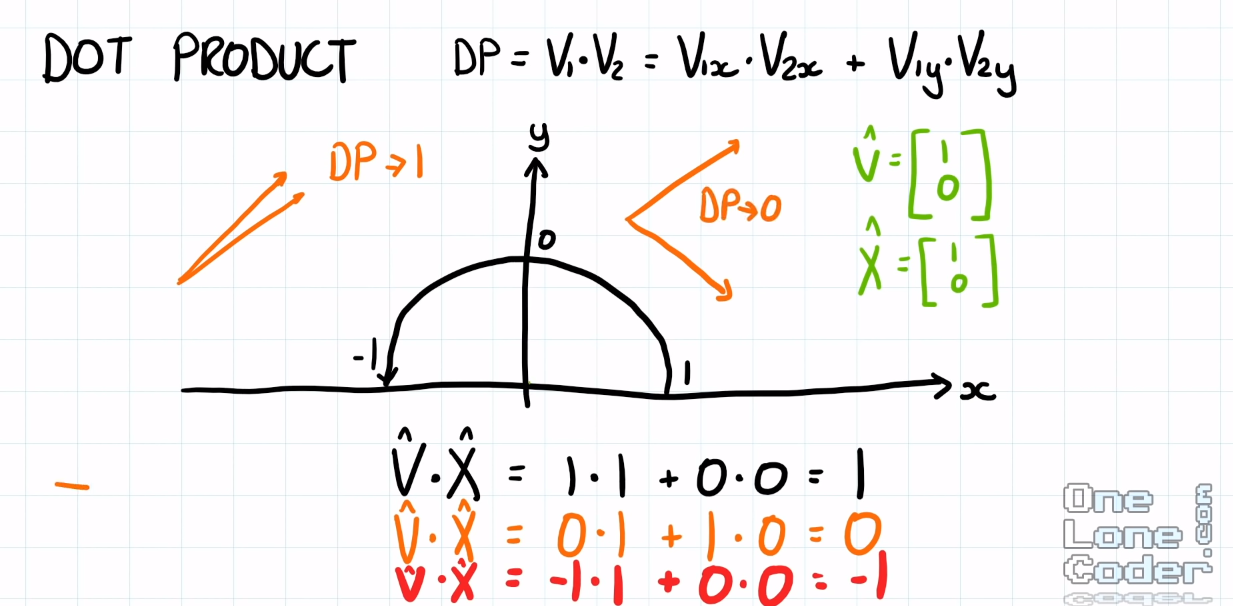 DOT PRODUCT DP = V₁·V₂ = V₁ₓ·V₂ₓ + V₁y·V₂y
y
DP→1
V̂ = [1 0]
DP→0
0
X̂ = [1 0]
-1
1
x
V̂·X̂ = 1·1 + 0·0 = 1
V̂·X̂ = 0·1 + 1·0 = 0
V̂·X̂ = -1·1 + 0·0 = -1
One
Lone
Coder
.com